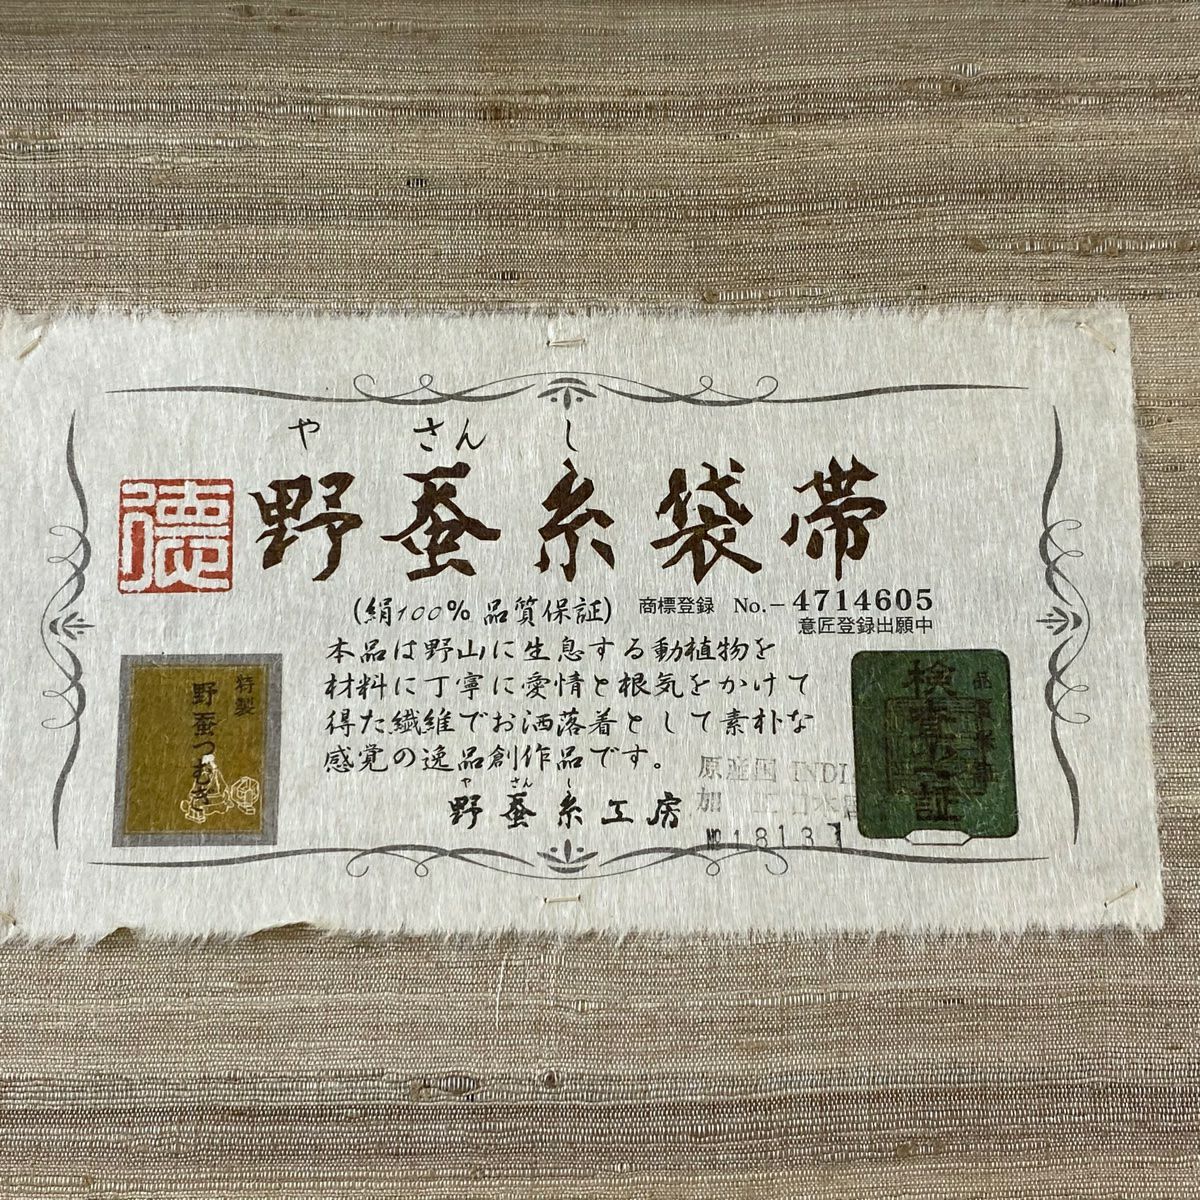 や さん し
德 野蚕糸袋帯
(絹100% 品質保証) 商標登録 No.-4714605
意匠登録出願中
本品は野山に生息する動植物を
材料に丁寧に愛情と根気をかけて
得た繊維でお洒落着として素朴な
感覚の逸品創作品です。
や さん し
野蚕糸工房
特製
野蚕つむぎ
原産国 INDI
加
No 18137
検査之証
品